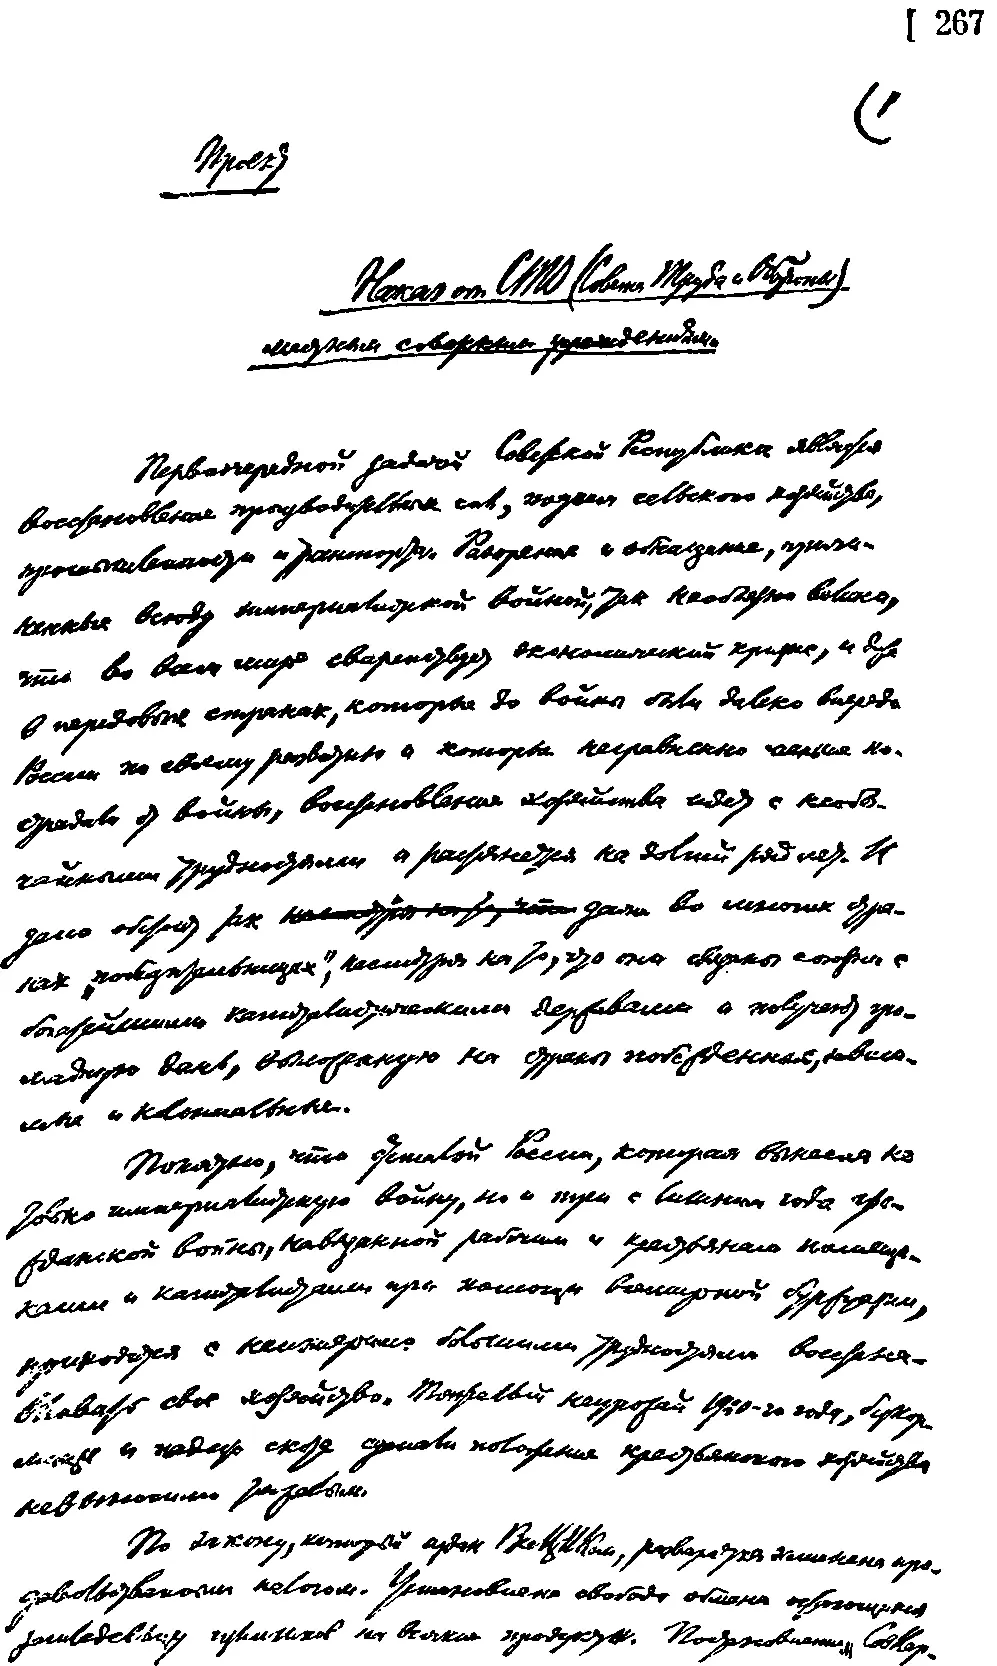 [ 267
1
Проект
Наказ от СТО (Совета Труда и Обороны)
местным советским учреждениям.
Первоочередной задачей Советской Республики является
восстановление производительных сил, подъем сельского хозяйства,
промышленности и транспорта. Разорение и обнищание, причи-
ненные всюду империалистской войной, так необъятно велики,
что во всем мире свирепствует экономический кризис, и даже
в передовых странах, которые до войны были далеко впереди
России по своему развитию и которые несравненно меньше по-
страдали от войны, восстановление хозяйства идет с необы-
чайными трудностями и растянется на долгий ряд лет. И
дело обстоит так даже во многих стра-
нах „победительницах“, несмотря на то, что они связаны союзом с
богатейшими капиталистическими державами и получают гро-
мадную дань, возложенную на страны побежденные, зависи-
мые и колониальные.
Понятно, что отсталой России, которая вынесла не
только империалистскую войну, но и три с лишним года гра-
жданской войны, навязанной рабочим и крестьянам помещи-
ками и капиталистами при помощи всемирной буржуазии,
приходится с неизмеримо большими трудностями восстана-
вливать свое хозяйство. Тяжелый неурожай 1920-го года, бескор-
мица и падеж скота сделали положение крестьянского хозяйства
невыносимо тяжелым.
По закону, который издан ВЦИКом, разверстка заменена про-
довольственным налогом. Установлена свобода обмена остающихся
земледельцу излишков на всякие продукты. Постановлениями СовНар-